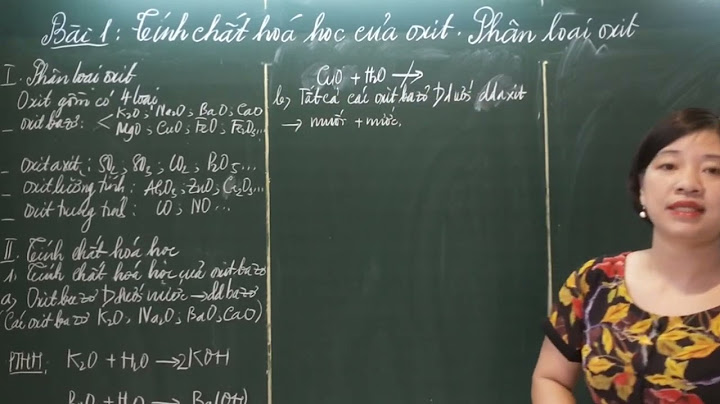 Bài 1: Tính chất hoá học của oxit. Phân loại oxit
I. Phân loại oxit
Oxit gồm có 4 loại
_ oxit bazơ: < K₂O; Na₂O; BaO; CaO
MgO; CuO; FeO; Fe₂O₃...
_ Oxit axit: SO₂; SO₃; CO₂; P₂O₅...
_ oxit lưỡng tính: Al₂O₃; ZnO; Cr₂O₃...
_ oxit trung tính: CO; NO...
II. Tính chất hoá học
1. Tính chất hoá học của oxit bazơ
a) Oxit bazơ t/d với nước → dd bazơ
(Các oxit bazơ K₂O; Na₂O; BaO; CaO)
PTHH: K₂O + H₂O → 2KOH
BaO + H₂O → Ba(OH)
CuO + H₂O ↛
b) Tất cả các oxit bazơ t/d với dd axit
→ muối + nước.